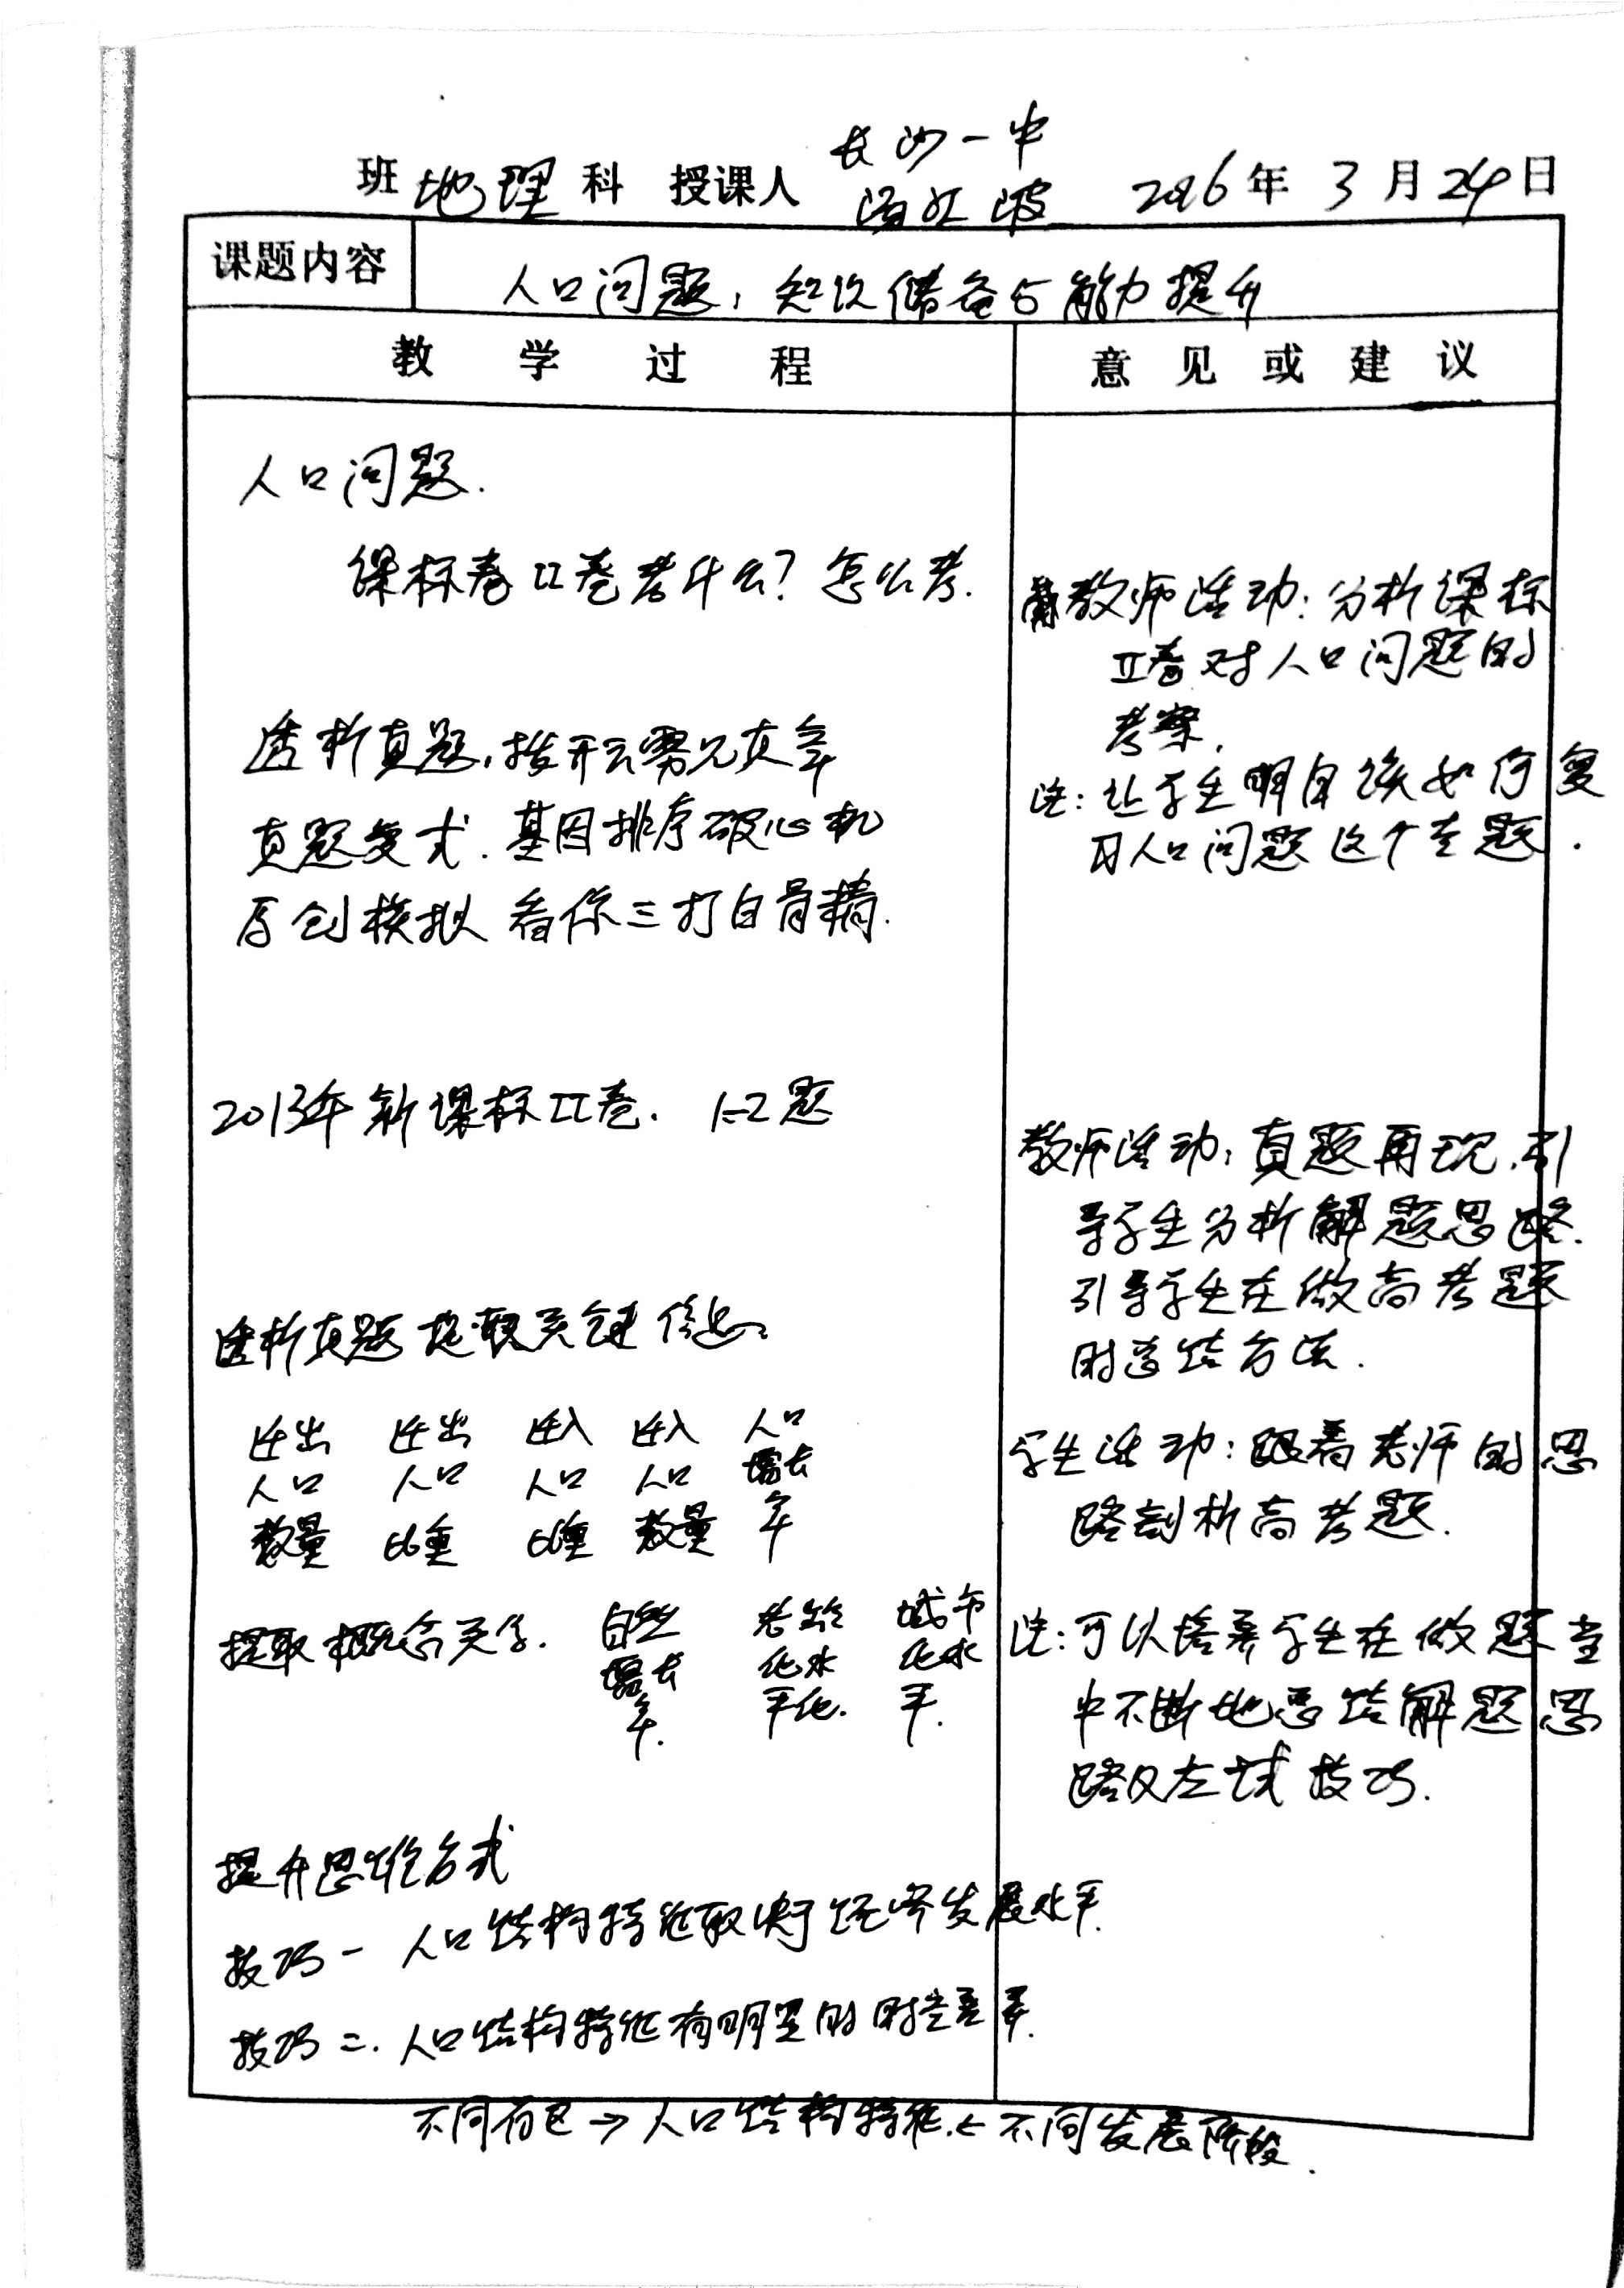 长沙一中
班 地理 科 授课人 江波 2016年 3月 24日
课题内容
人口问题：知识储备与能力提升
教学过程
意见或建议
人口问题.
课标卷II卷考什么？怎么考.
教师活动：分析课标
II卷对人口问题的
考察.
注：让学生明白该如何复
习人口问题这个专题.
透析真题，拨开云雾见真章
真题变式.基因排序破心机
原创模拟 看你三打白骨精.
2013年新课标II卷. 1-2题
教师活动：真题再现.引
导学生分析解题思路.
引导学生在做高考题
时总结方法.
透析真题 提取关键信息
迁出 迁出 迁入 迁入 人口
人口 人口 人口 人口 增长
数量 比重 比重 数量 率
学生活动：跟着老师的思
路剖析高考题.
提取概念关系. 自然 老龄 城市
增长 化水 化水
率. 平化. 平.
注：可以培养学生在做题当
中不断地总结解题思
路及应试技巧.
提升思维方式
技巧一 人口结构特征取决于经济发展水平.
技巧二. 人口结构特征有明显的时空差异.
不同地区→人口结构特征.←不同发展阶段.